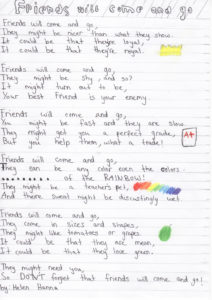 Friends will come and go
Friends will come and go,
They might be nicer than what they show.
It could be that they're loyal,
It could be that they're royal.
Friends will come and go,
They might be shy, and so?
It might turn out to be,
Your best friend is your enemy.
Friends will come and go,
You might be fast and they are slow.
They might get you a perfect grade,
A+
But you help them, what a trade!
Friends will come and go,
They can be any color even the colors
of the RAINBOW!
They might be a teacher's pet,
And there sweat might be disgustingly wet.
Friends will come and go,
They come in sizes and shapes,
They might like tomatoes or grapes.
It could be that they are mean,
It could be that they love green.
They might need you,
So DON'T forget that friends will come and go!
by: Helen Hanna